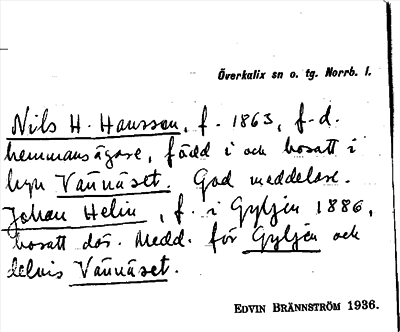 Överkalix sn o. tg. Norrb. l.
Nils H. Hansson, f. 1863, f.d.
hemmansägare, född i och bosatt i
byn Vännäset. God meddelare.
Johan Helin, f. i Gyljen 1886,
bosatt där. Medd. för Gyljen och
delvis Vännäset.
EDVIN BRÄNNSTRÖM 1936.